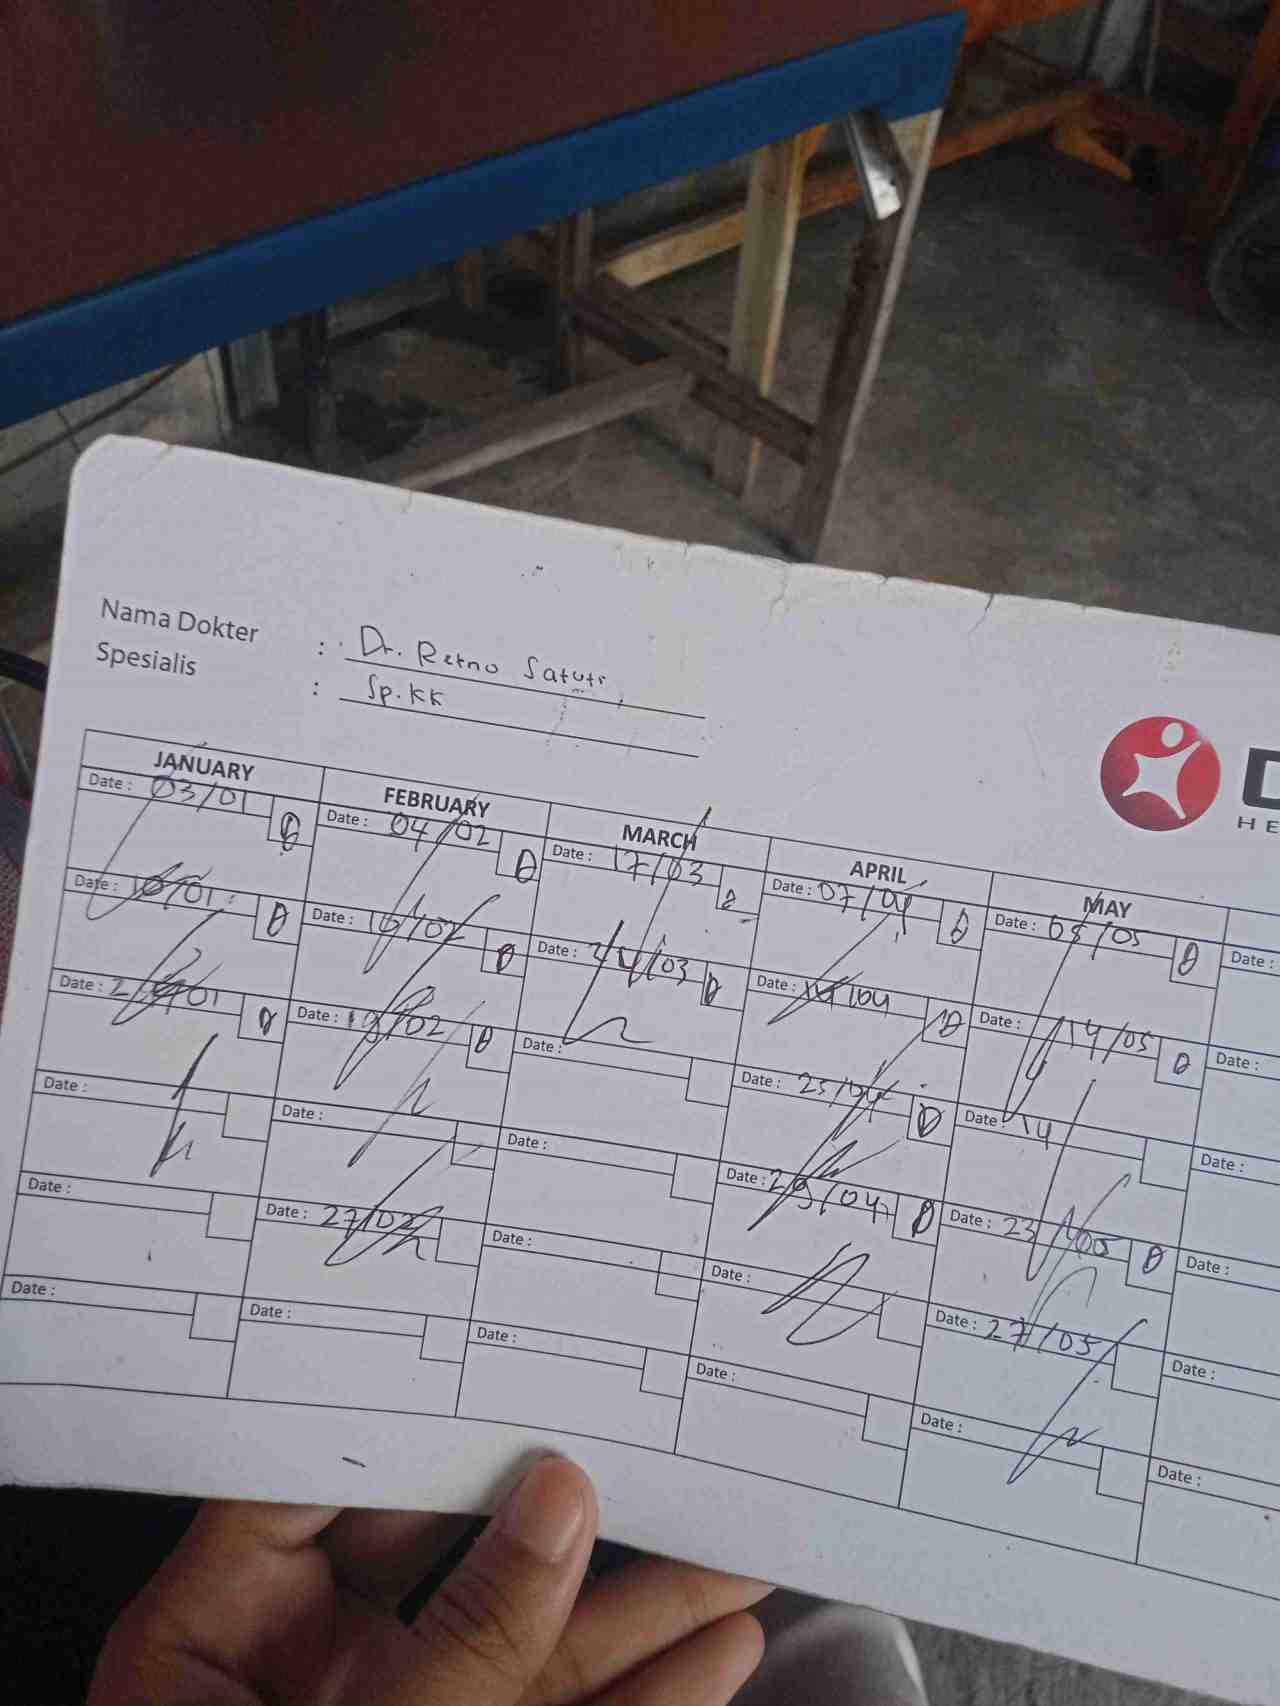 Nama Dokter : Dr. Retno Satuti
Spesialis : Sp.KK
D
HE
JANUARY FEBRUARY MARCH APRIL MAY
Date : 03/01 Date : 04/02 Date : 17/03 Date : 07/04 Date : 08/05 Date :
Date : 10/01 Date : 10/02 Date : 24/03 Date : 14/04 Date : 14/05 Date :
Date : Date : 19/02 Date : Date : 25/04 Date : 14 Date :
Date : Date : Date : Date : 29/04 Date : 23/05 Date :
Date : Date : 27/02 Date : Date : Date : 27/05 Date :
Date : Date : Date : Date : Date : Date :